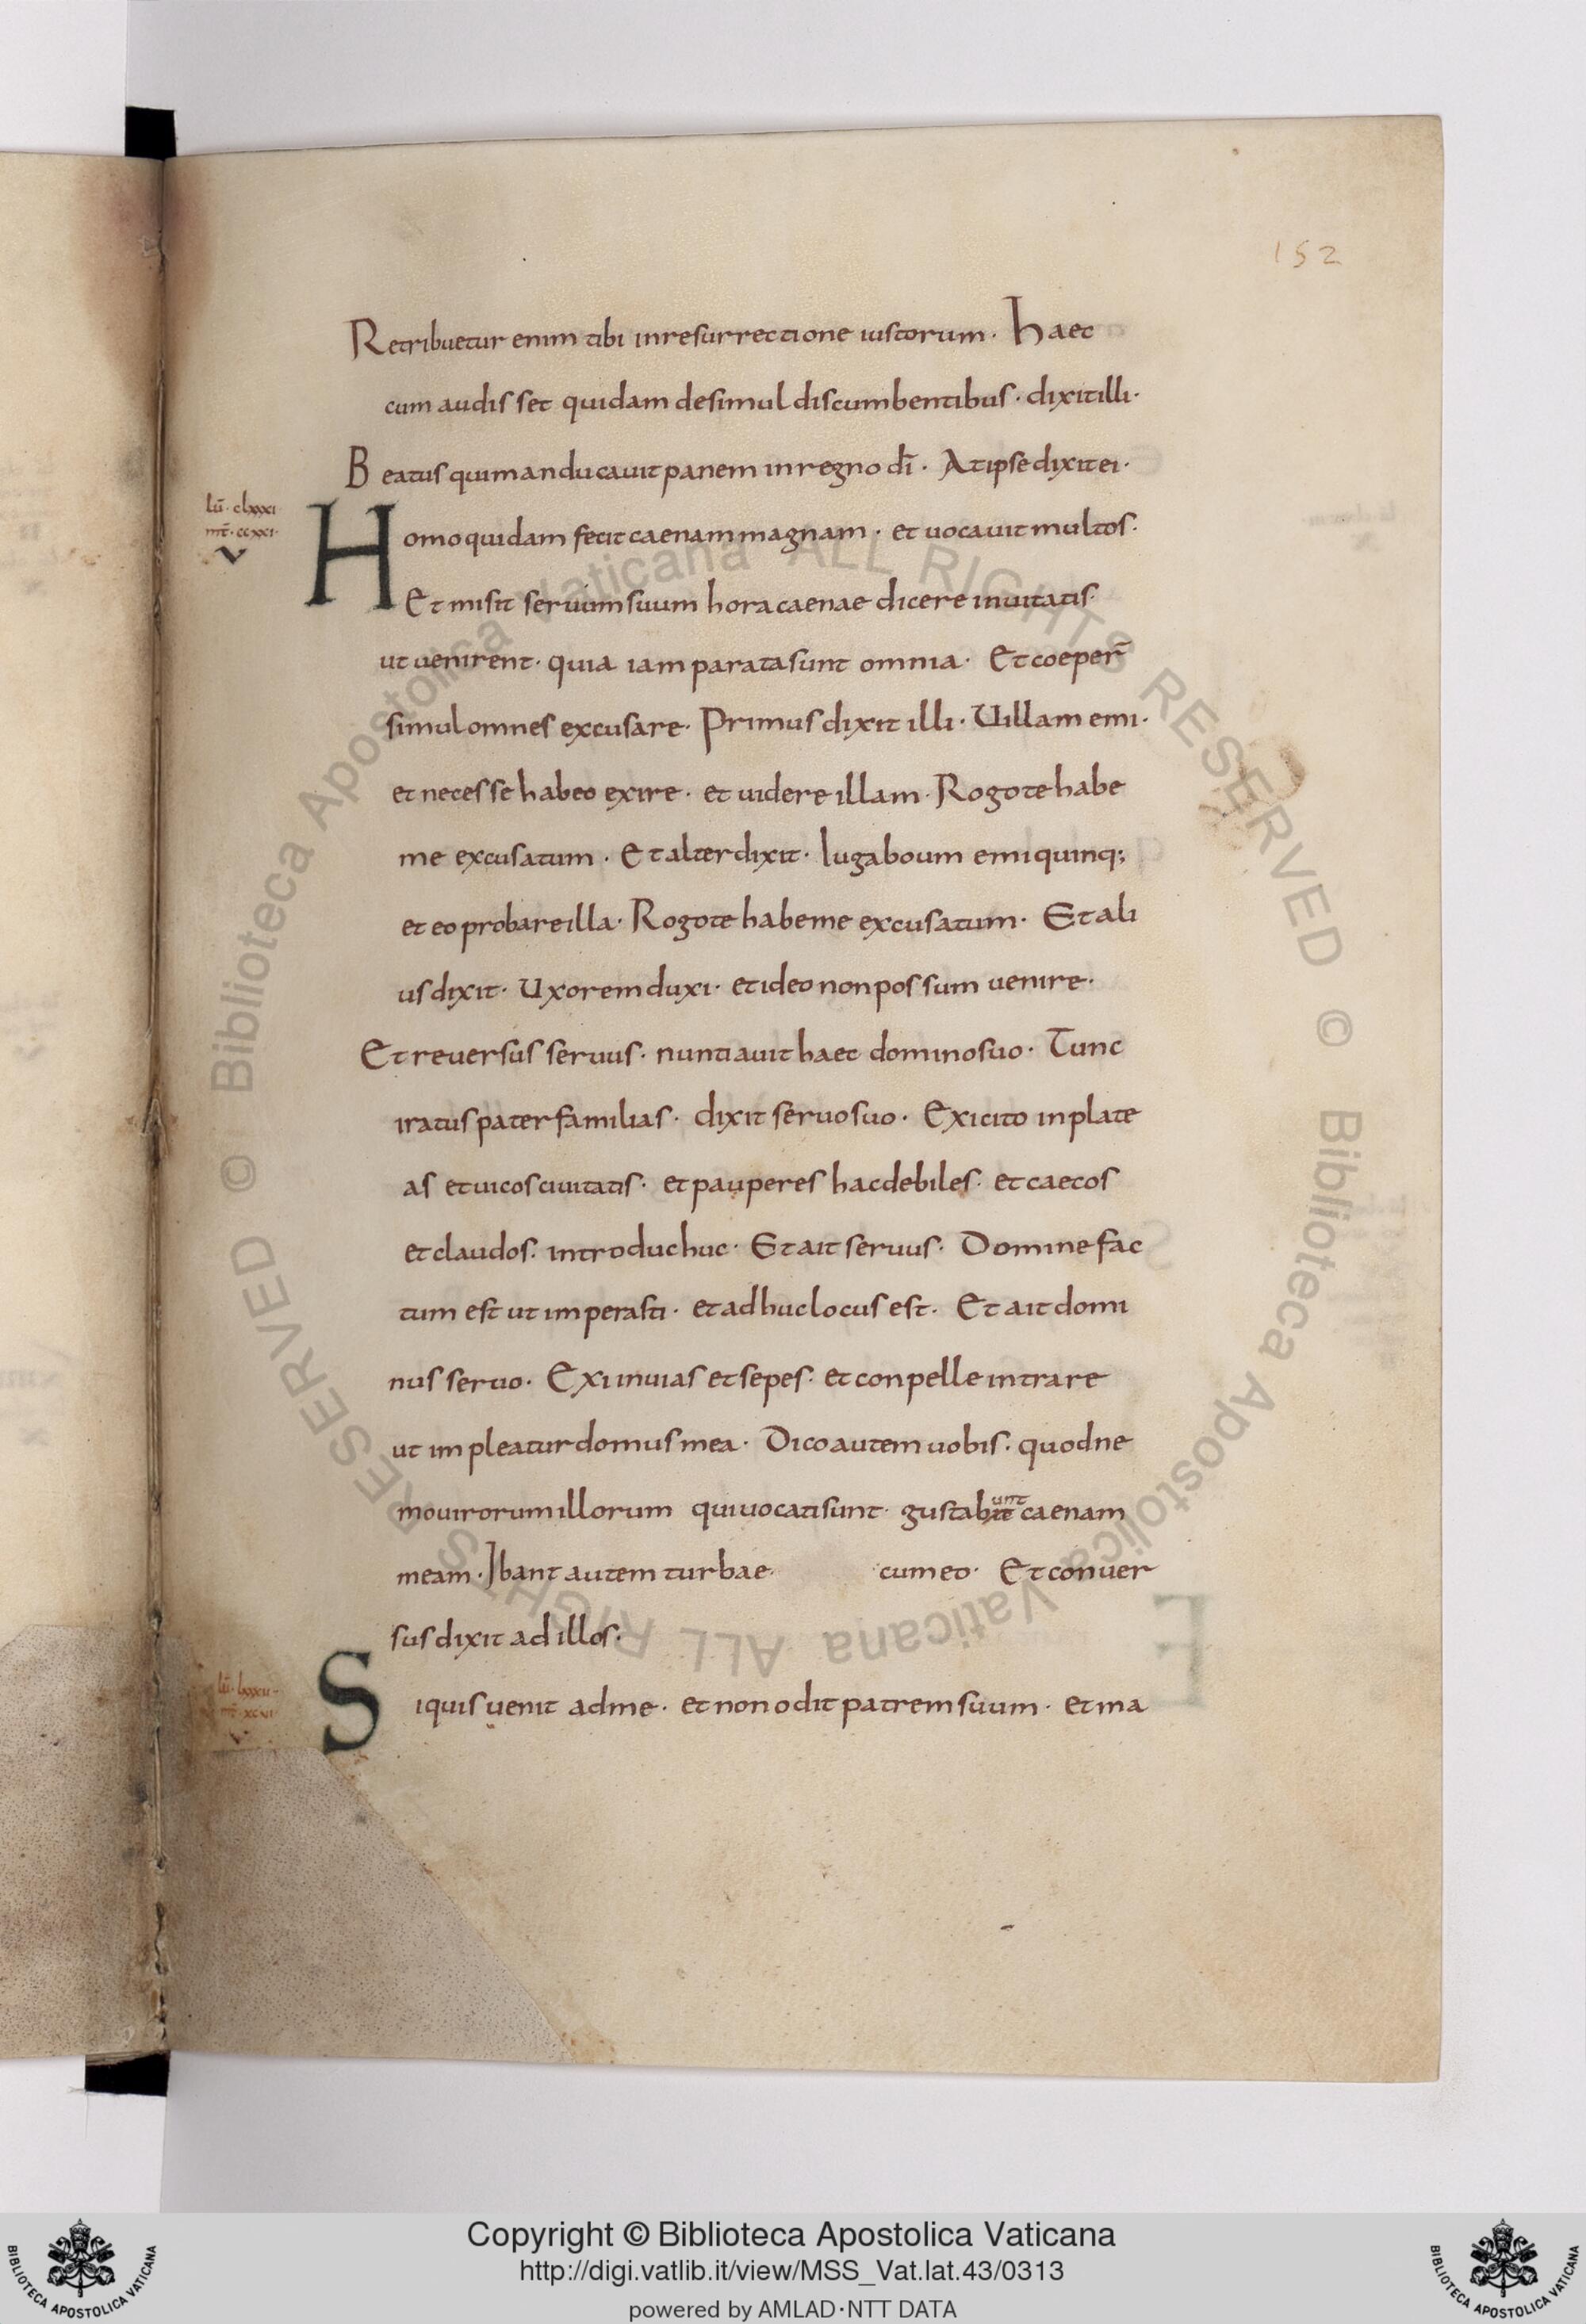 152
Retribuetur enim tibi in resurrectione iustorum· Haec
cum audisset quidam de simul discumbentibus· dixit illi·
Beatus qui manducauit panem in regno dī· At ipse dixit ei·
lū· clxxxi
mt̄· ccxxi·
v
Homo quidam fecit caenam magnam· et uocauit multos·
Et misit seruum suum hora caenae dicere inuitatis·
ut uenirent· quia iam parata sunt omnia· Et coeper̄
simul omnes excusare· Primus dixit illi· Uillam emi·
et necesse habeo exire· et uidere illam· Rogo te habe
me excusatum· Et alter dixit· Iuga boum emi quinq;
et eo probare illa· Rogo te habe me excusatum· Et ali
us dixit· Uxorem duxi· et ideo non possum uenire·
Et reuersus seruus· nuntiauit haec domino suo· Tunc
iratus pater familias· dixit seruo suo· Exi cito in plate
as et uicos ciuitatis· et pauperes hac debiles· et caecos
et claudos· introduc huc· Et ait seruus· Domine fac
tum est ut imperasti· et adhuc locus est· Et ait domi
nus seruo· Exi in uias et sepes· et conpelle intrare
ut impleatur domus mea· Dico autem uobis· quod ne
mo uirorum illorum qui uocati sunt· gustabunt caenam
meam· Ibant autem turbae· cum eo· Et conuer
sus dixit ad illos·
Si quis uenit ad me· et non odit patrem suum· et ma
© Biblioteca Apostolica Vaticana ALL RIGHTS RESERVED © Biblioteca Apostolica Vaticana ALL RIGHTS RESERVED
Copyright © Biblioteca Apostolica Vaticana
http://digi.vatlib.it/view/MSS_Vat.lat.43/0313
powered by AMLAD·NTT DATA
BIBLIOTECA APOSTOLICA VATICANA
BIBLIOTECA APOSTOLICA VATICANA